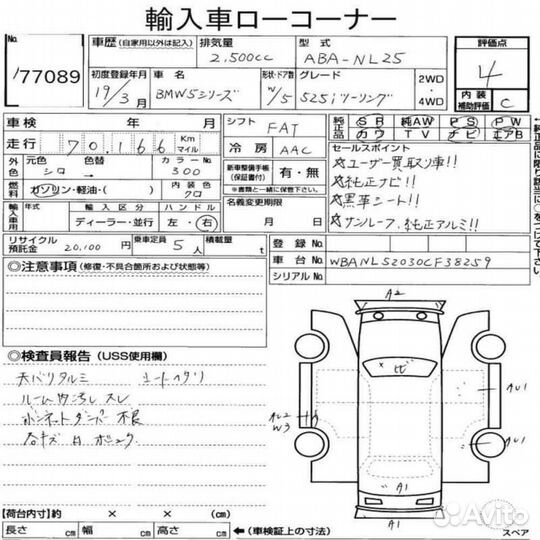 輸入車ローコーナー
No. 77089
車歴 (自家用以外は記入) 排気量 2,500cc 型式 ABA-NL25
評価点 4
内装補助評価 C
初度登録年月 19/3月 車名 BMW5シリーズ 形状・ドア数 W/5 グレード 525iツーリング 2WD・4WD
車検 年 月 シフト FAT 純正品 SR 純AW PS PW
カワ TV ナビ エアB
走行 70,166 Km マイル 冷房 AAC
セールスポイント
☆ユーザー買取り車!!
☆純正ナビ!!
☆黒革シート!!
☆サンルーフ、純正アルミ!!
外色 元色 シロ 色替 → カラーNo. 300
燃料 ガソリン・軽油・( ) 内装色 クロ
新車整備手帳(保証書付) 有・無
※記録簿と一緒に保管して下さい。
名義変更期限 月 日
輸入車用 年式 輸入区分 ディーラー・並行 ハンドル 左・右
リサイクル預託金 20,100 円 乗車定員 5 人 積載量 t
登録No.
車台No. WBANL52030CF38259
シリアルNo.
◎注意事項 (修復・不具合箇所および状態等)
◎検査員報告 (USS使用欄)
天バリタルミ シートヘタリ
ルーム内汚レ スレ
ボンネットダンパー 不良
A2
ヒ
AU1
AU2
W3
AU1
A1
A1
【荷台内寸】約 × ×
長さ cm 幅 cm 高さ cm ◀(車検証上の寸法)
スペア
Avito